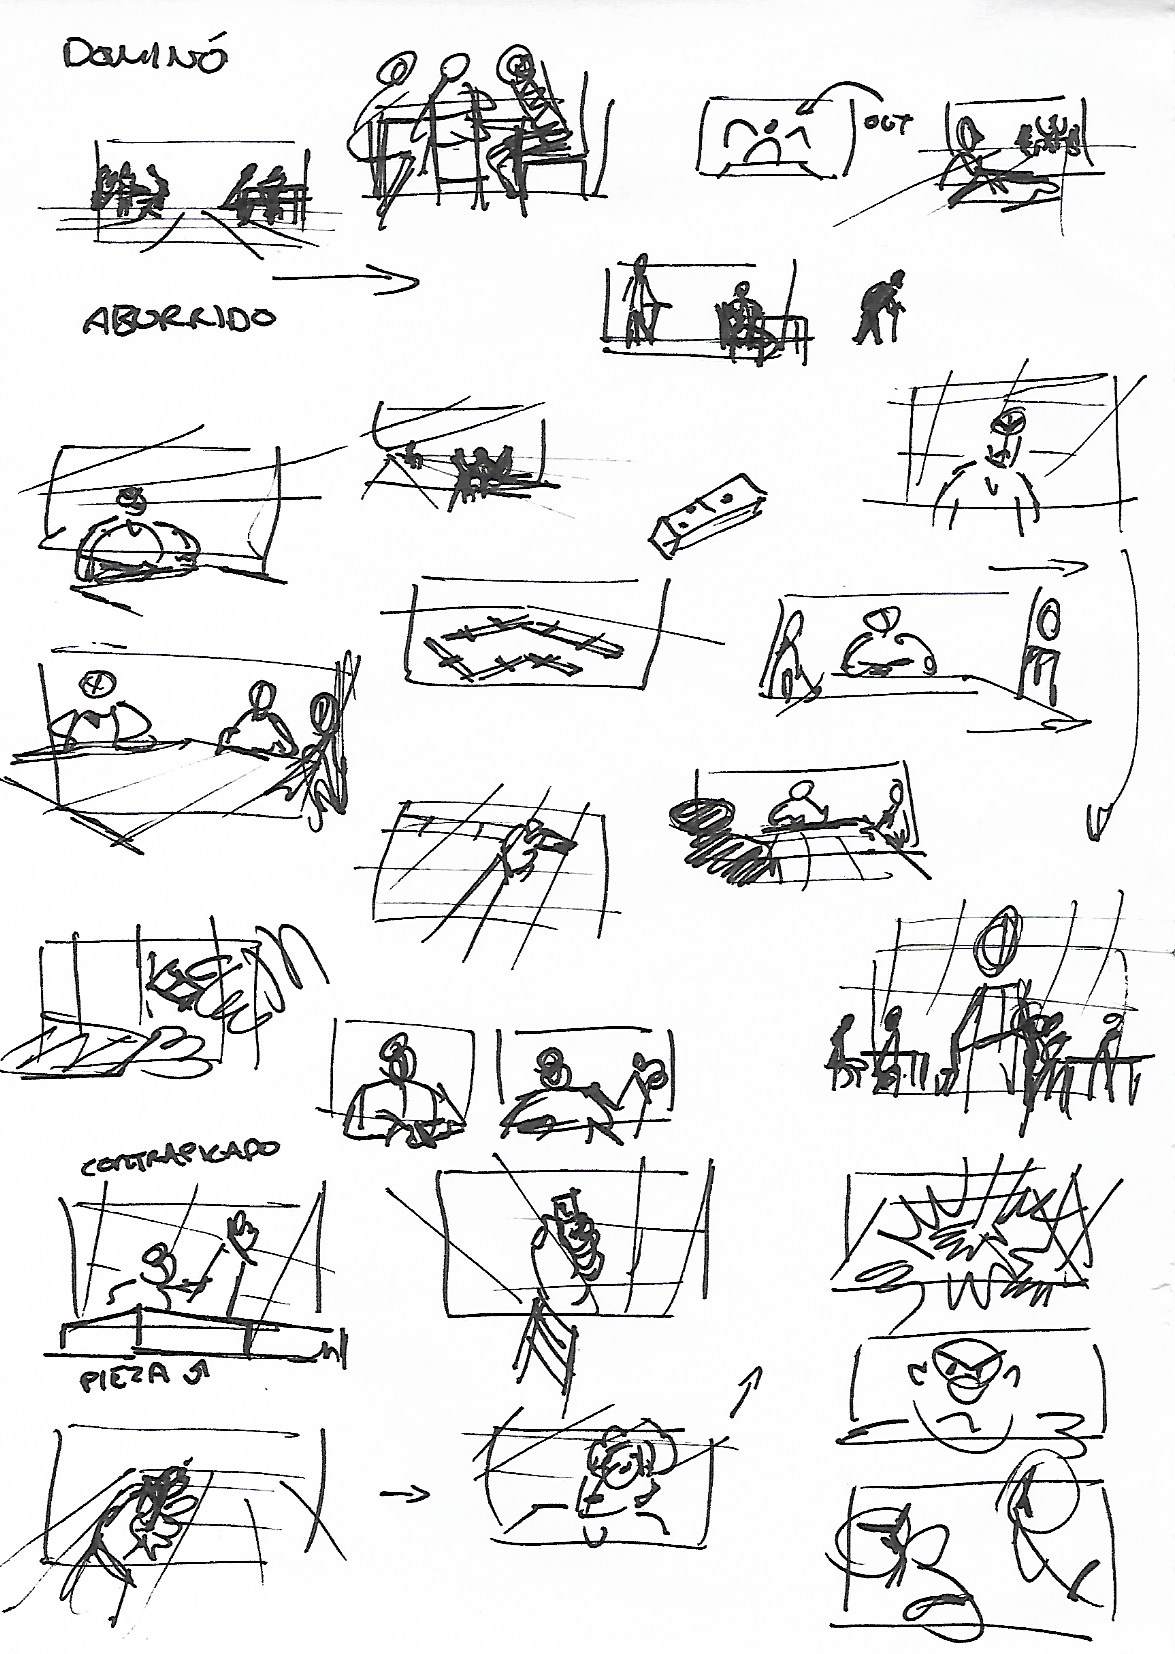 DOMINÓ
OUT
ABURRIDO
CONTRAPICADO
PIEZA